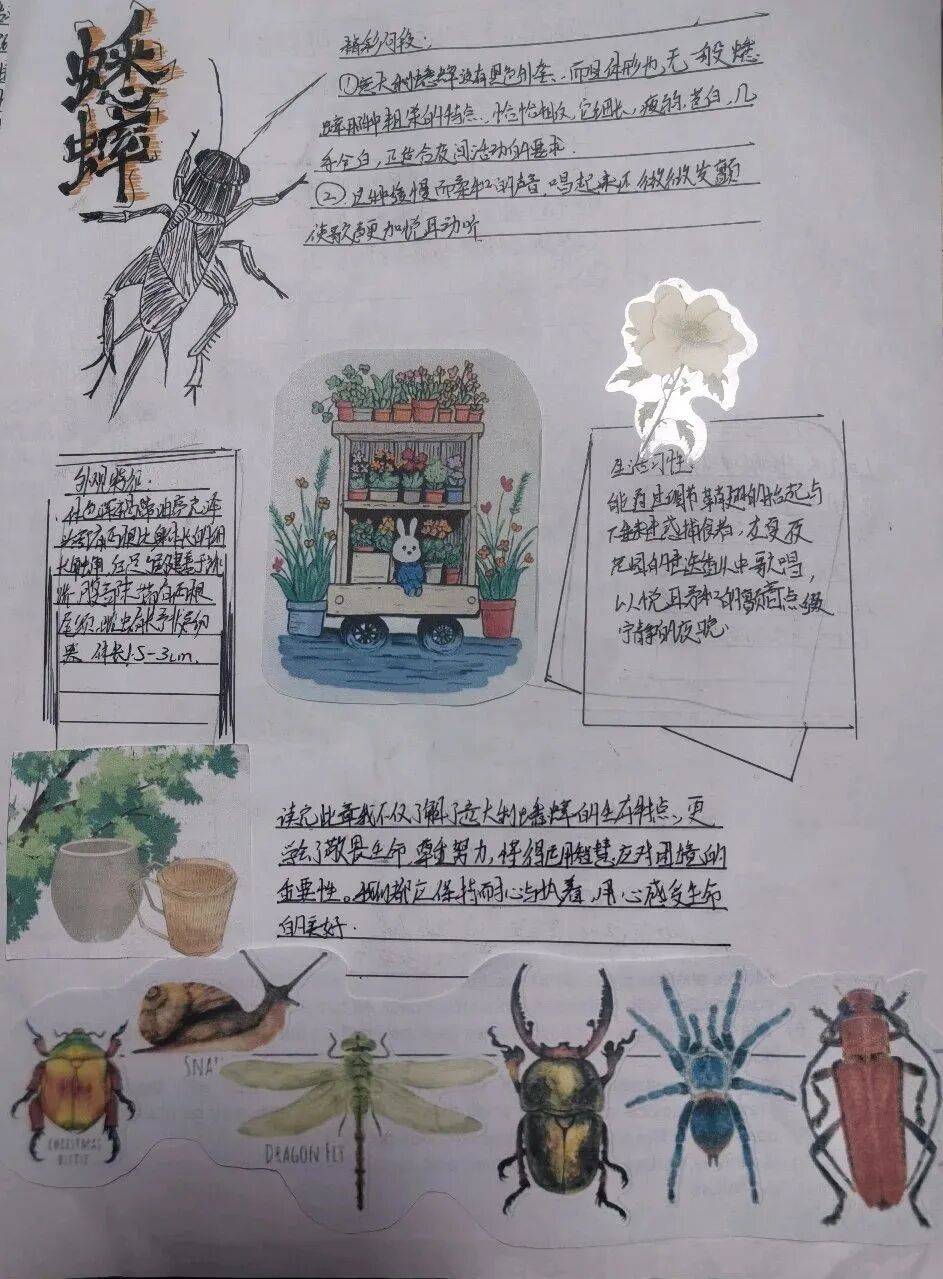 蟋
蟀
精彩片段：
①意大利蟋蟀没有黑色外套，而且体形也无一般蟋
蟀那种粗笨的特点。恰恰相反，它细长，瘦弱，苍白，几
乎全白，正适合夜间活动的要求．
②这种缓慢而柔和的声音，唱起来还微微发颤
使歌声更加悦耳动听
外观特征．
头部有两根比身体长的细
长触角，
尾须，雌虫有长矛状产卵
器 体长1.5-3cm．
生活习性：
能通过调节鞘翅的抬起与
下垂来迷惑捕食者，在夏夜
从中歌唱，
以悦耳柔和的 点缀
宁静的夜晚
读完此章我不仅了解了意大利蟋蟀的生存特点，更
学会了敬畏生命，尊重努力，懂得运用智慧应对困境的
重要性。我们都应保持耐心与执着，用心感受生命
的美好．
SNA
CHRISTMAS
BEETLE
DRAGON FLY